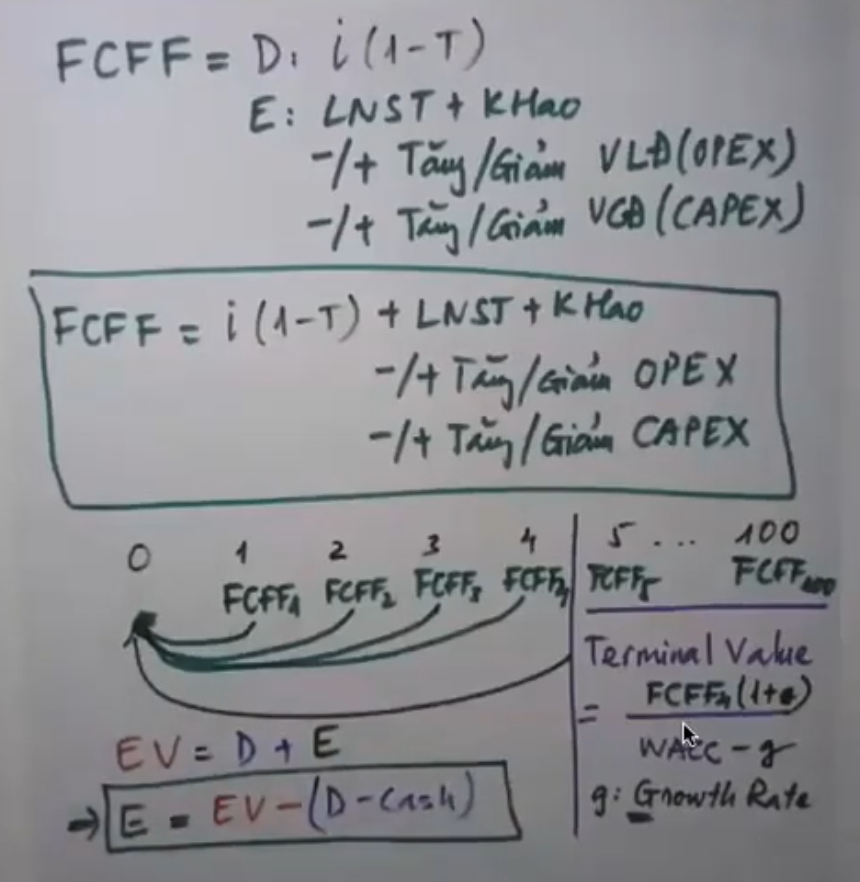 FCFF = D: i(1-T)
E: LNST + KHao
-/+ Tăng/Giảm VLĐ(OPEX)
-/+ Tăng/Giảm VCĐ(CAPEX)
FCFF = i(1-T) + LNST + KHao
-/+ Tăng/Giảm OPEX
-/+ Tăng/Giảm CAPEX
0 1 2 3 4 5 ... 100
FCFF₁ FCFF₂ FCFF₃ FCFF₄ FCFF₅ FCFF₁₀₀
Terminal Value
= FCFF₄(1+g)
WACC - g
g: Growth Rate
EV = D + E
→ E = EV-(D-Cash)